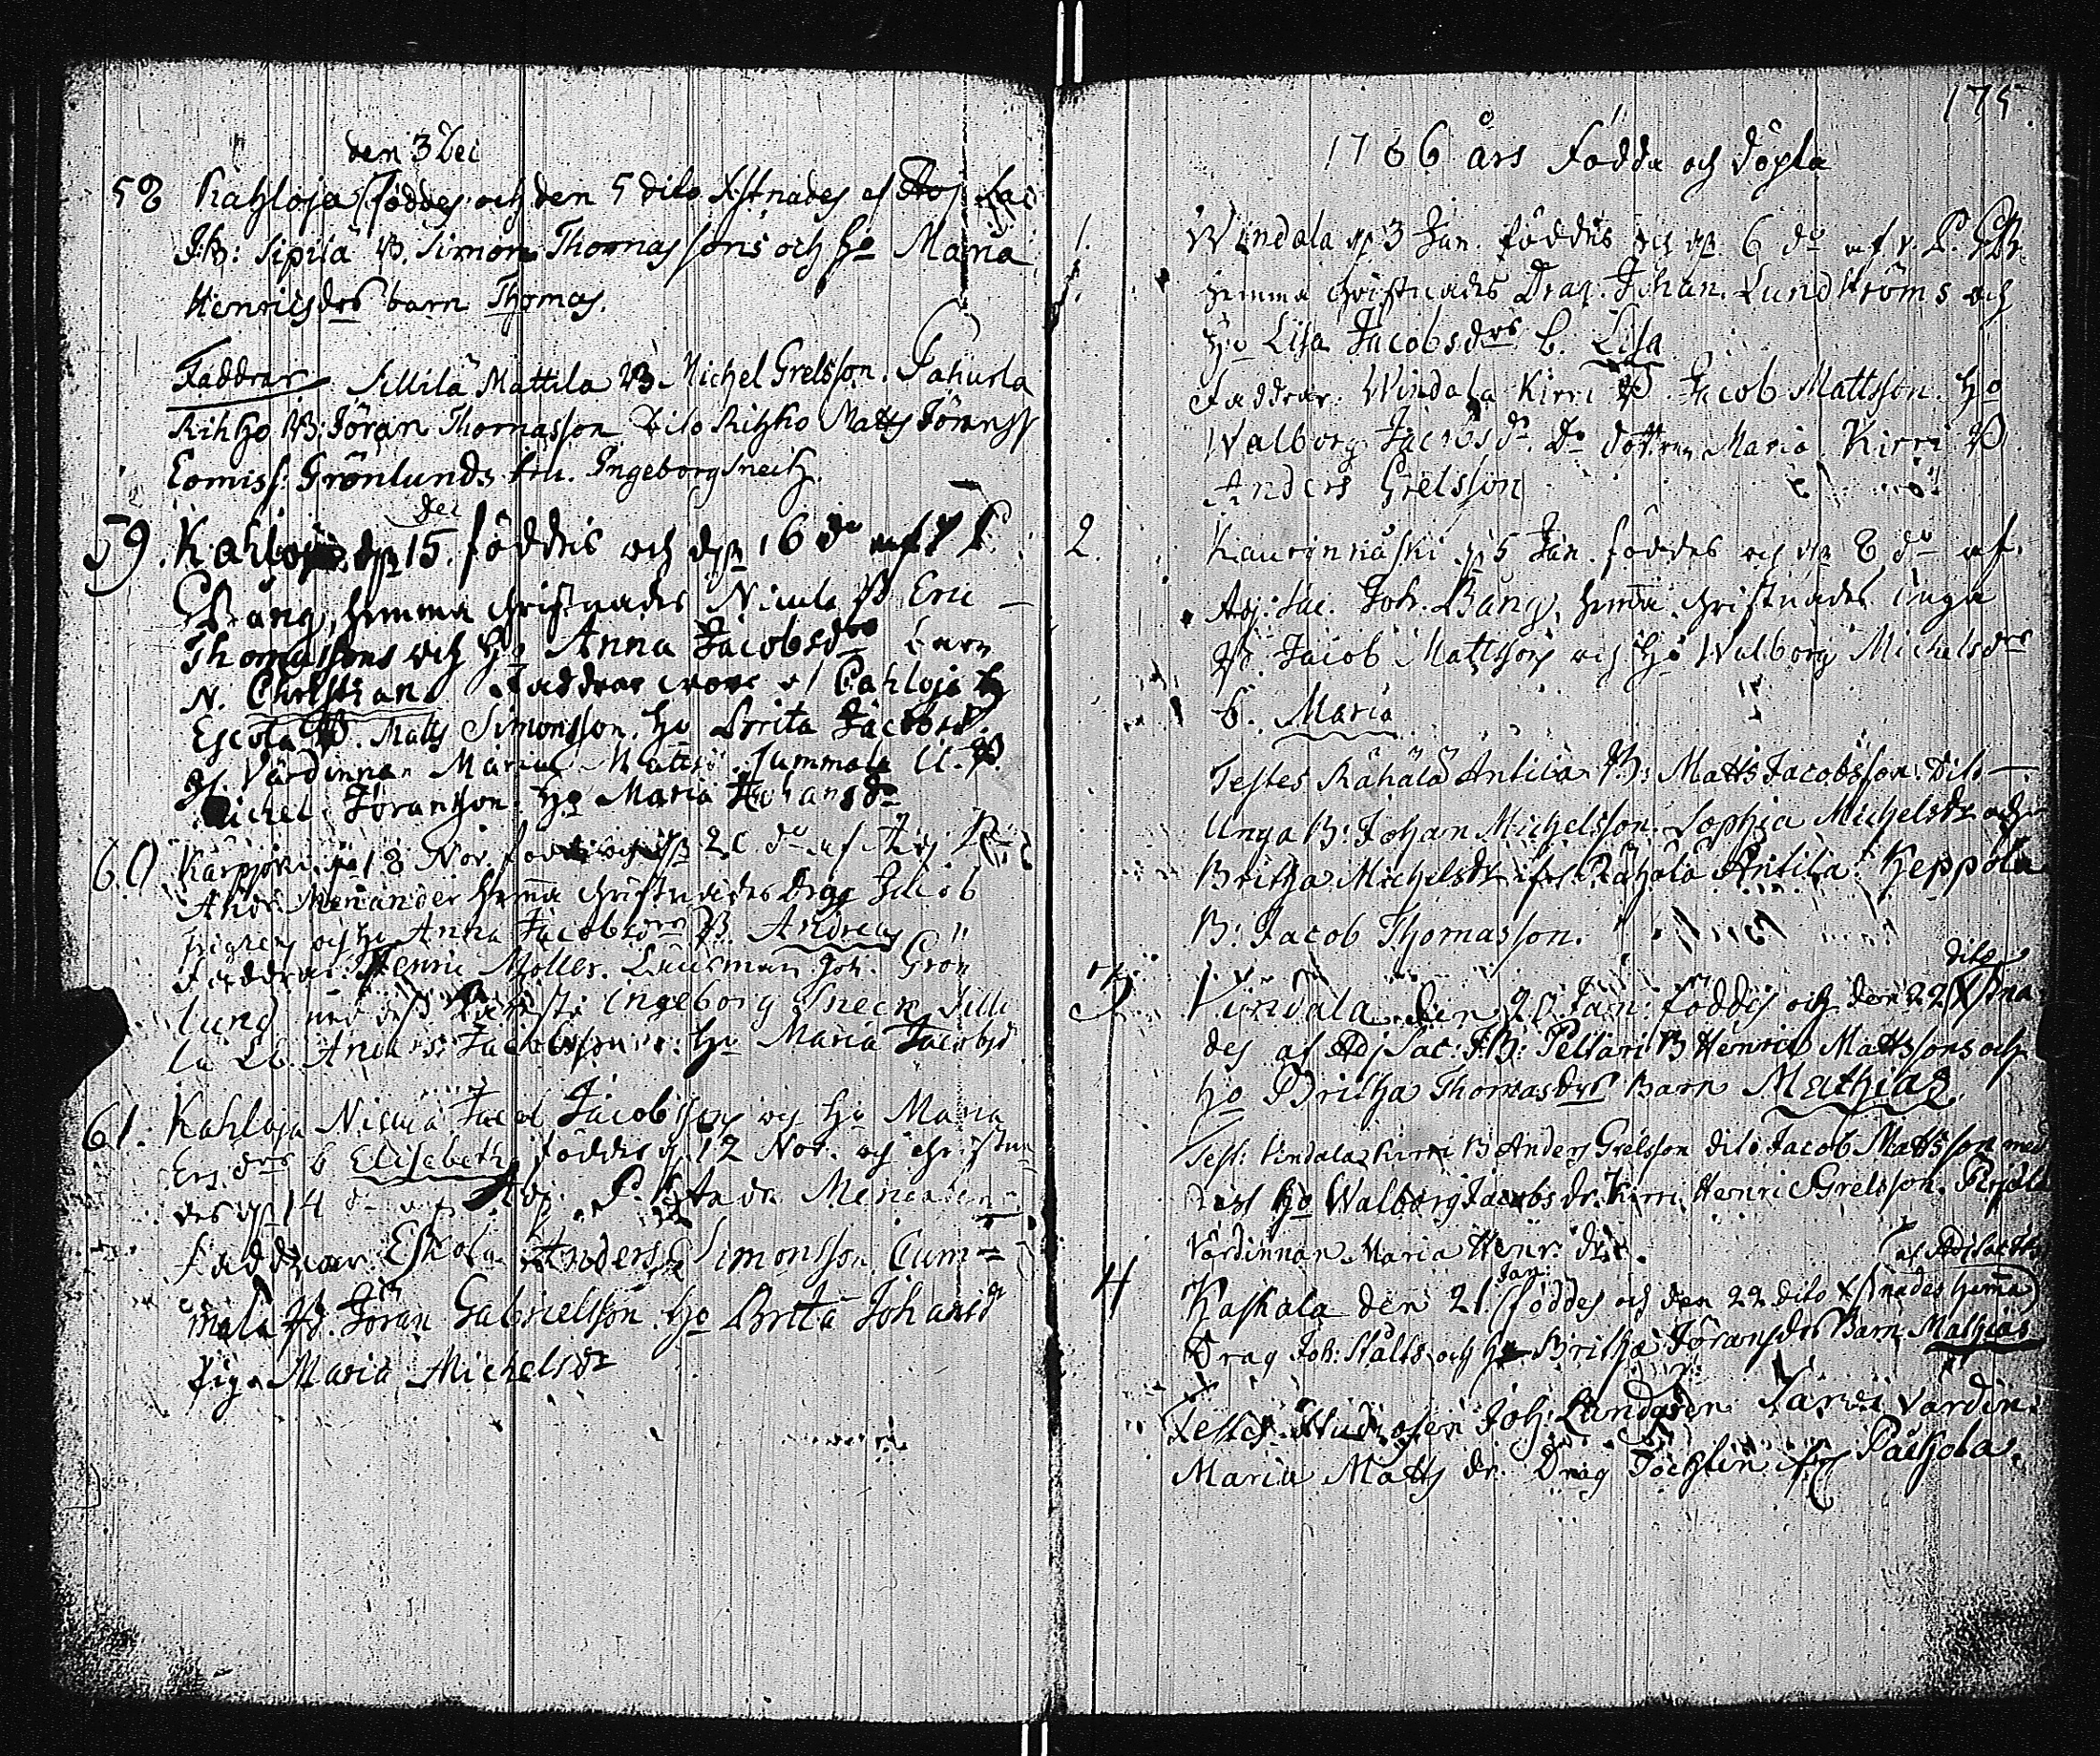 den 3 Dec
58 Kahloja föddes och den 5 dito Xstnades af Adj Sac
J:B: Sipila B. Simon Thomassons och Ho Maria
Henricsdrs barn Thomas.
Faddrar Sillilä Mattila B. Michel Grelsson. Pahurla
Rihho B: Jöran Thomasson Dito Rihho Matts Jöranss
Comiss: Grönlunds fru. Ingeborg Snech.
Dec
59. Kahloja d. 15. föddes och d. 16 do af
Bäng, hemma christnades Nicula B Eric
Thomassons och Ho Anna Jacobsdrs barn
N. Christian. Faddrar wore
Escola B. Matts Simonsson. Ho Brita Jacobsd.
Värdinnan Maria Matts. Cummala
Michel Jöransson. Ho Maria Johansdr
60 Karpjoki d. 18 Nov. föddes och d. 20 do af Adj
Andr. Menander hemma christnades Drag Jacob
och Ho Anna Jacobsdrs B. Andreas
Faddrar. Henric Möller. Länsman Joh. Grön
lund med dess Ingeborg Sneck Silli
la Anders Jacobsson. Ho Maria Jacobsd
61. Kahloja Nicula Jacob Jacobssons och Ho Maria
Ersdrs b Elisebeth föddes d. 12 Nov. och christna
des d. 14 do af Adj. Andr. Menander
Faddrar Eskola Anders Simonsson. Cum=
mala B. Jöran Gabrielsson. Ho Brita Johansdr
Pig. Maria Michelsdr
175.
1766 års Födda och döpta
1. Windala d. 3 Jan. föddes och d. 6 do af v. P.
hemma christnades Drag. Johan. Lundströms och
Ho Lisa Jacobsdrs b. Lisa
Faddrar. Windala Kirri B. Jacob Mattsson. Ho
Walborg Jacobsdr. Do dottren Maria. Kirri B
Anders Grelsson
2. Kaurinnäski d. 5 Jan. föddes och d. 8 do af.
Adj. Sac. Joh. Bäng, hemma christnades Unga
B. Jacob Mattsons och Ho Walborg Michelsdrs
b. Maria
Testes Rähälä Antila B: Matts Jacobsson. Dito
Unga B: Johan Michelsson. Sophia Michelsdr och
Britha Michelsdr ifr Rähälä Antila. Heppola
B: Jacob Thomasson.
dito
3. Vindala den 20 Jan: föddes och den 22 Xstna
des af Adj Sac: J:B: Peltari B Henric Mattssons och
Ho Britha Thomasdrs Barn Mathias.
Test: Vindala Kirri B Anders Grelsson dito Jacob Mattsson med
dess Ho Walborg Jacobsdr. Kirri Henric Grelsson.
Värdinnan Maria Henr: dr.
af Adj Sac
Jan:
4 Kaskala den 21 föddes och den 22 dito Xstnades hemma
Drag Joh: Stålts och Ho Britha Jöransdrs Barn Mathias
Testes. Studiosen Joh: Lundgren Jarvi värdin:
Maria Matts dr. Drag Töchlin ifrå Passola.